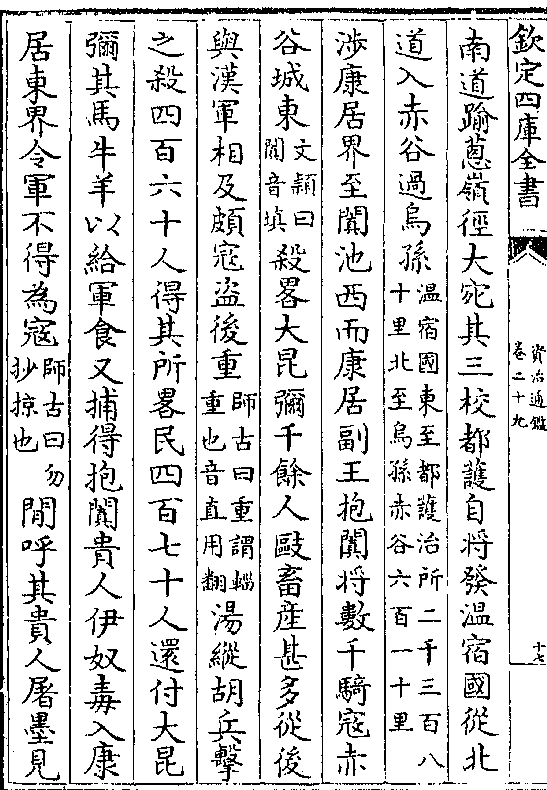 欽定四庫全書
資治通鑑
卷二十九
十七
南道踰蔥嶺徑大宛其三校都護自將發溫宿國從北
道入赤谷過烏孫溫宿國東至都護治所二千三百八
十里北至烏孫赤谷六百一十里
涉康居界至闐池西而康居副王抱闐將數千騎寇赤
谷城東文穎曰
闐音填殺畧大昆彌千餘人敺畜産甚多從後
與漢軍相及頗寇盜後重師古曰重謂輜
重也音直用翻湯縱胡兵擊
之殺四百六十人得其所畧民四百七十人還付大昆
彌其馬牛羊以給軍食又捕得抱闐貴人伊奴毒入康
居東界令軍不得為寇師古曰勿
抄掠也閒呼其貴人屠墨見